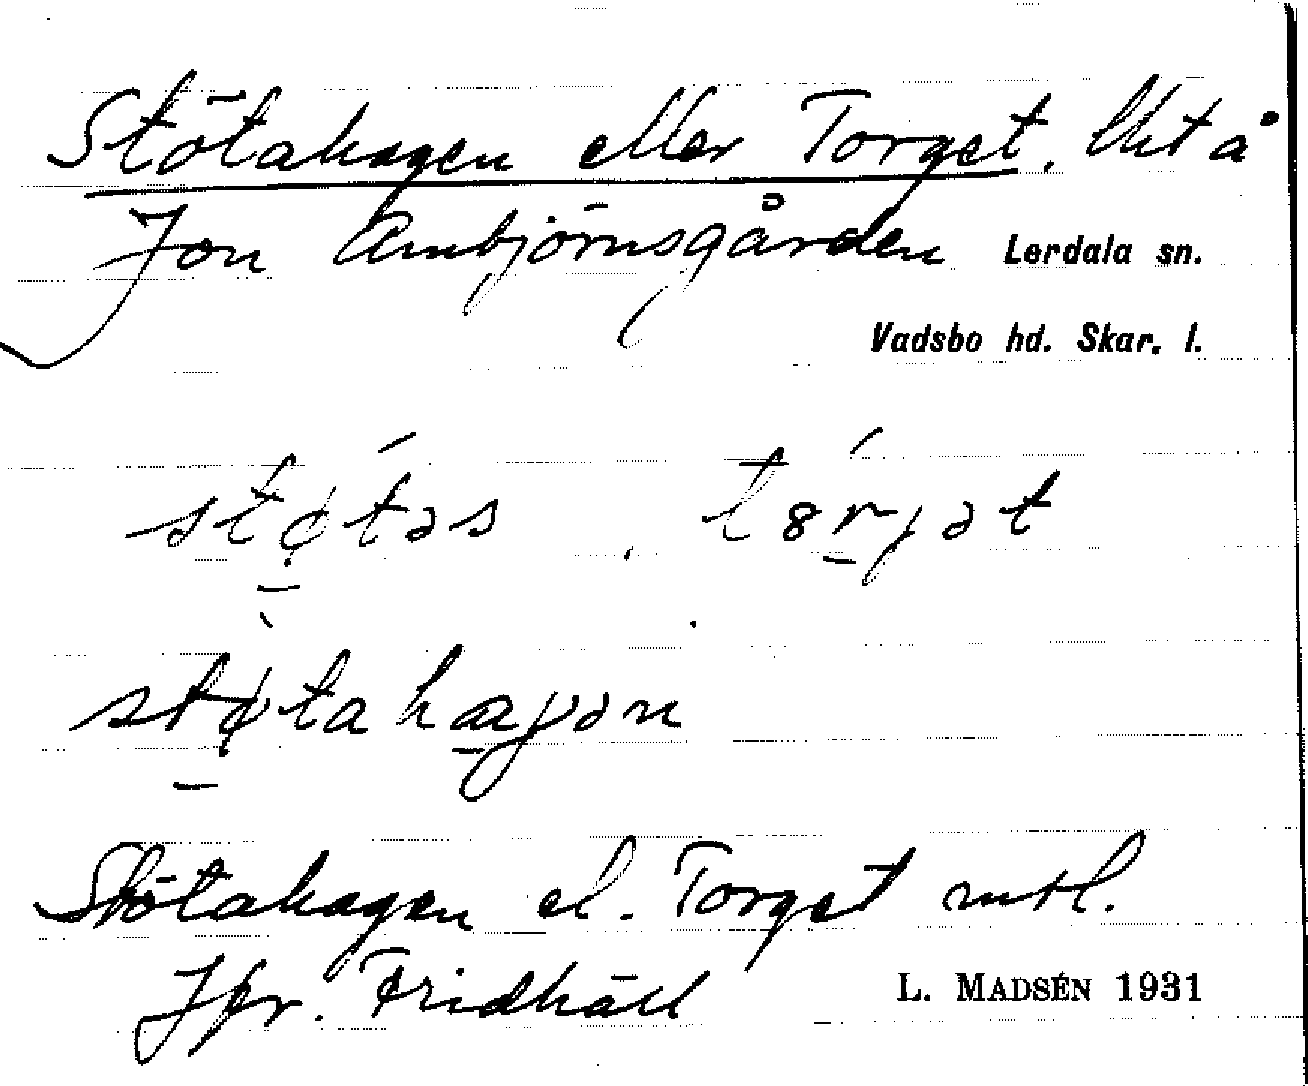 Stötahagen eller Torget. Ukt å
Jon Ambjörnsgården Lerdala sn.
Vadsbo hd. Skar. l.
støtəs, tørjət
støtahagən
Stötahagen el. Torget mtl.
Jfr. Fridhäll
L. MADSÉN 1931